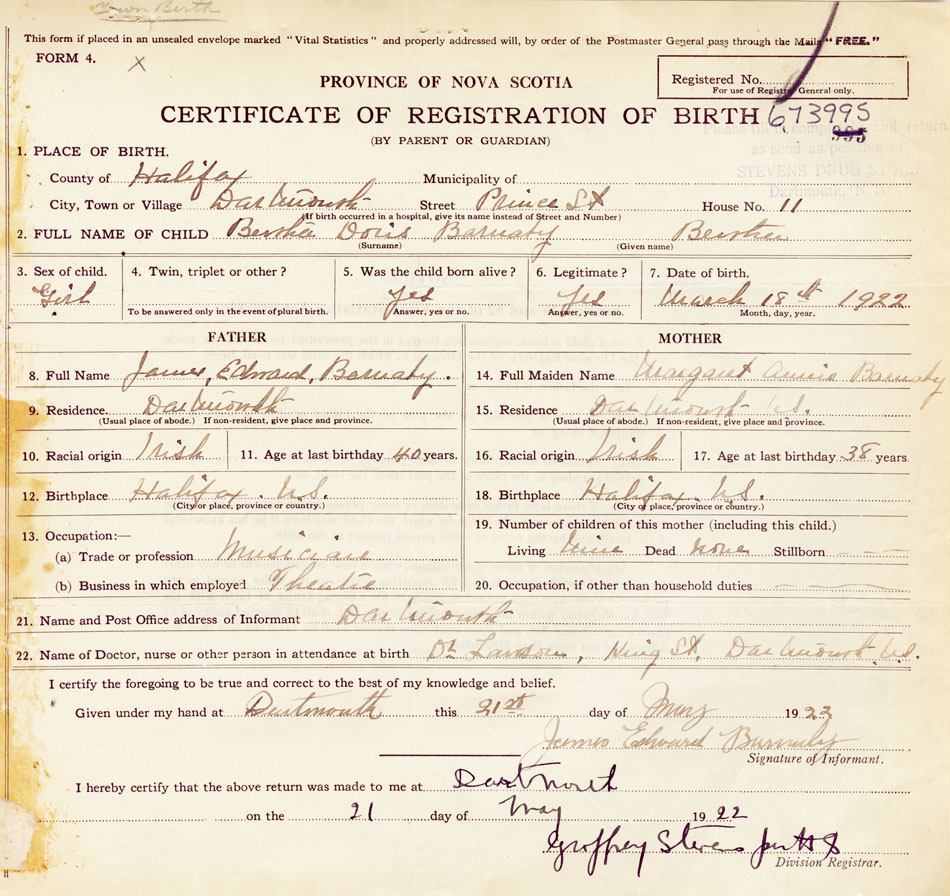 Town Birth
This form if placed in an unsealed envelope marked "Vital Statistics" and properly addressed will, by order of the Postmaster General pass through the Mails "FREE."
FORM 4. X
PROVINCE OF NOVA SCOTIA
Registered No.
For use of Registrar General only.
CERTIFICATE OF REGISTRATION OF BIRTH 673995
(BY PARENT OR GUARDIAN)
995
STEVENS DRUG STORE
Dartmouth, N. S.
1. PLACE OF BIRTH.
County of Halifax Municipality of
City, Town or Village Dartmouth Street Prince St House No. 11
(If birth occurred in a hospital, give its name instead of Street and Number)
2. FULL NAME OF CHILD Bertha Doris Barnaby Bertha
(Surname) (Given name)
3. Sex of child. 4. Twin, triplet or other? 5. Was the child born alive? 6. Legitimate? 7. Date of birth.
Girl Yes Yes March 18th 1922
To be answered only in the event of plural birth. Answer, yes or no. Answer, yes or no. Month, day, year.
FATHER MOTHER
8. Full Name James, Edward, Barnaby. 14. Full Maiden Name Margaret Annie Barnaby
9. Residence. Dartmouth 15. Residence Dartmouth N.S.
(Usual place of abode.) If non-resident, give place and province. (Usual place of abode.) If non-resident, give place and province.
10. Racial origin Irish 11. Age at last birthday 40 years. 16. Racial origin Irish 17. Age at last birthday 38 years
12. Birthplace Halifax. N.S. 18. Birthplace Halifax. N.S.
(City or place, province or country.) (City or place, province or country.)
13. Occupation:— 19. Number of children of this mother (including this child.)
(a) Trade or profession Musician Living Nine Dead none Stillborn
(b) Business in which employed Theatre 20. Occupation, if other than household duties
21. Name and Post Office address of Informant Dartmouth
22. Name of Doctor, nurse or other person in attendance at birth Dr King St, Dartmouth N.S.
I certify the foregoing to be true and correct to the best of my knowledge and belief.
Given under my hand at Dartmouth this 21st day of May 1922
James Edward Barnaby
Signature of Informant.
I hereby certify that the above return was made to me at Dartmouth
on the 21 day of May 1922
Geoffrey Stevens
Division Registrar.